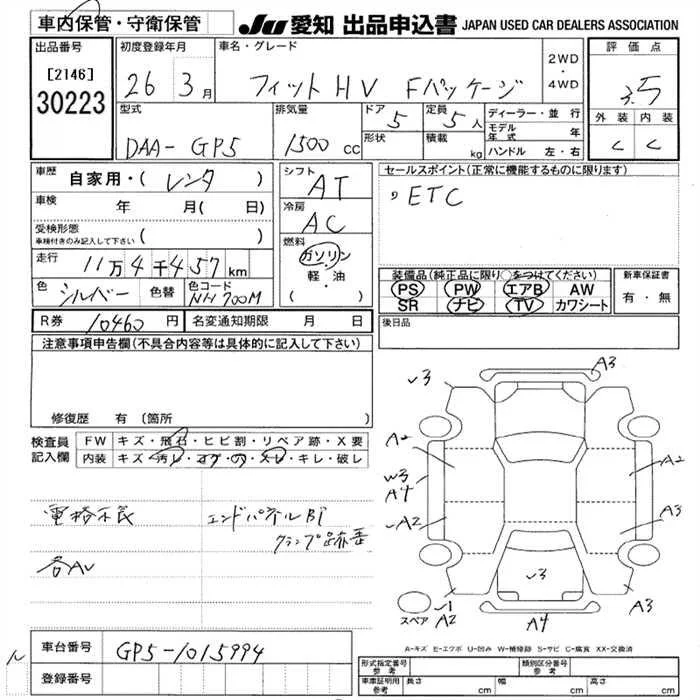 車内保管・守衛保管
JU 愛知 出品申込書 JAPAN USED CAR DEALERS ASSOCIATION
出品番号
[2146]
30223
初度登録年月
26 3月
車名・グレード
フィット HV Fパッケージ
2WD
・
4WD
評価点
3.5
外装 内装
C C
型式
DAA- GP5
排気量
1500 cc
ドア
5
形状
定員
5人
積載
kg
ディーラー・並行
モデル年式 年
ハンドル 左・右
車歴
自家用・( レンタ )
車検 年 月( 日)
受検形態
車検付きのみ記入して下さい ( )
走行
11万4千457km
色
シルバー 色替
色コード
NH700M
シフト
AT
冷房
AC
燃料
ガソリン
・
軽・油
( )
セールスポイント(正常に機能するものに限ります)
ETC
装備品(純正品に限り○をつけてください)
PS PW エアB AW
SR ナビ TV カワシート
新車保証書
有・無
R券 10460 円 名変通知期限 月 日
後日品
注意事項申告欄(不具合内容等は具体的に記入して下さい)
修復歴 有(箇所
検査員記入欄
FW キズ・飛石・ヒビ割・リペア跡・X要
内装 キズ・汚レ・コゲ・穴・スレ・キレ・破レ
電格不良 エンドパネルBT
クランプ跡歪
各AU
車台番号 GP5-1015994
登録番号
A3
✓3
A2
A2
W3
A4
A2
A3
✓3
✓1
A2
A4
A3
スペア
A-キズ E-エクボ U-凹み W-補修跡 S-サビ C-腐食 XX-交換済
形式指定番号参考
類別区分番号参考
車庫証明用参考 長さ cm 幅 cm 高さ cm